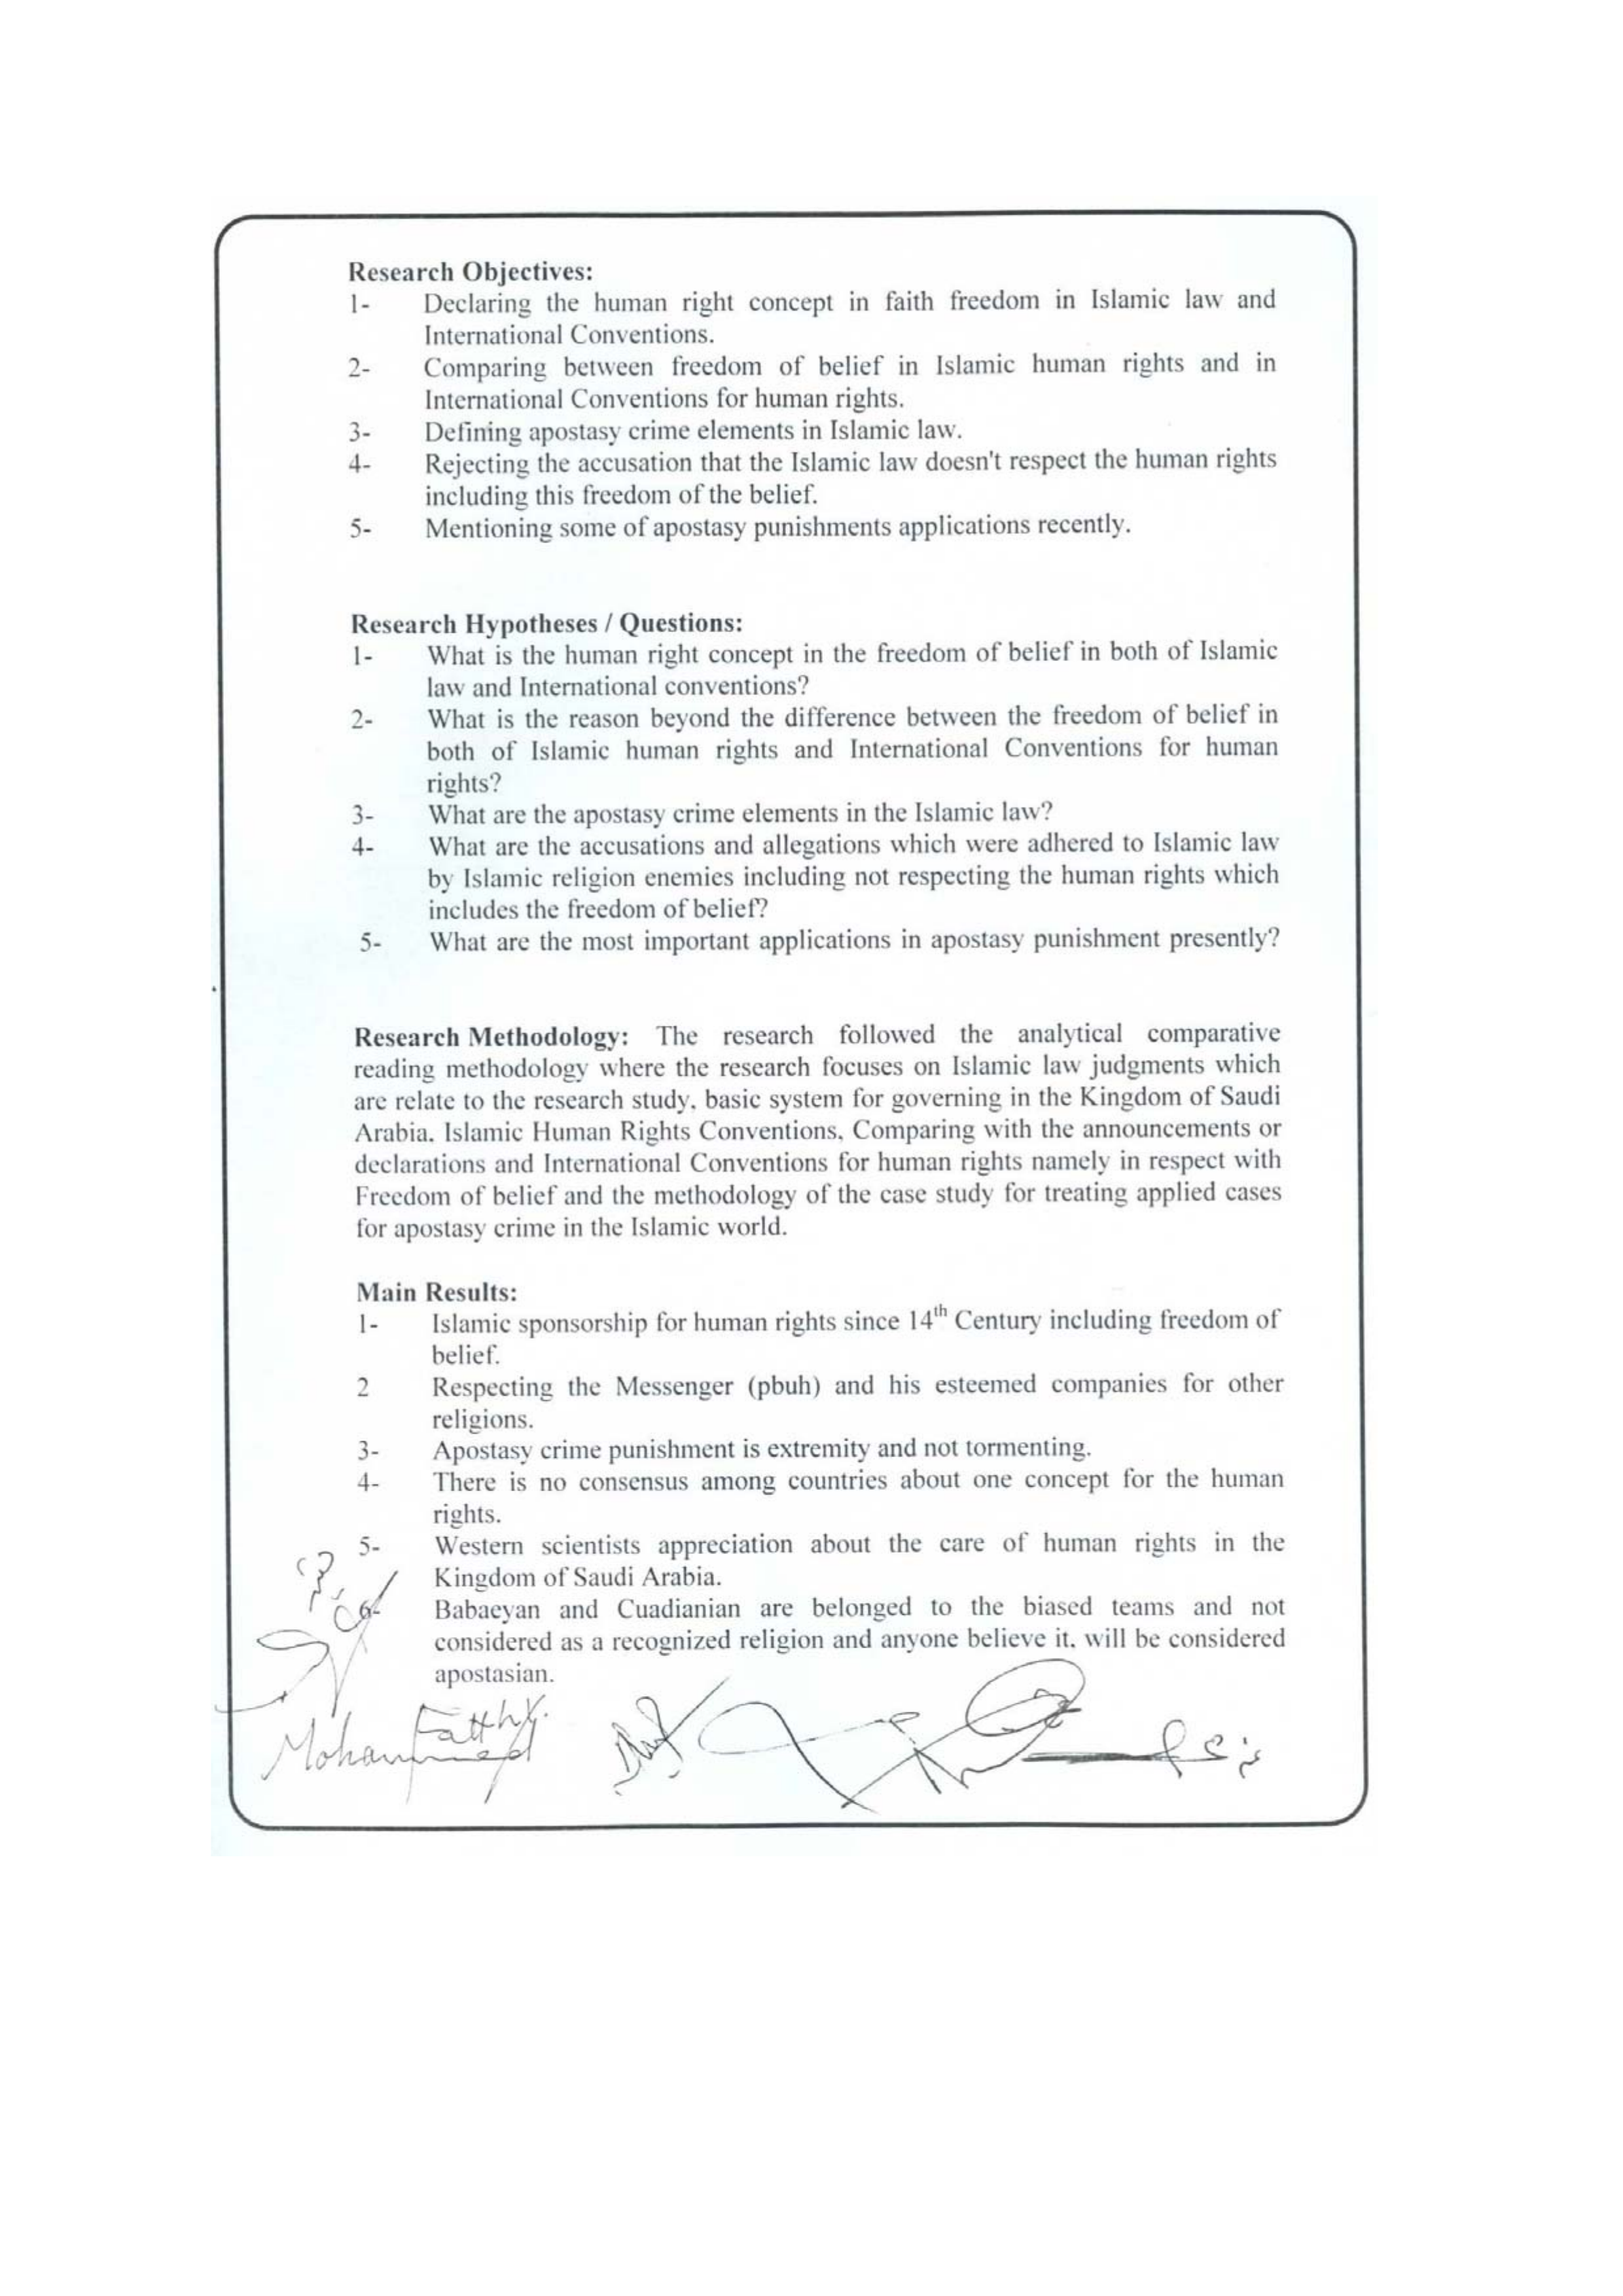 Research Objectives:
1- Declaring the human right concept in faith freedom in Islamic law and
International Conventions.
2- Comparing between freedom of belief in Islamic human rights and in
International Conventions for human rights.
3- Defining apostasy crime elements in Islamic law.
4- Rejecting the accusation that the Islamic law doesn't respect the human rights
including this freedom of the belief.
5- Mentioning some of apostasy punishments applications recently.
Research Hypotheses / Questions:
1- What is the human right concept in the freedom of belief in both of Islamic
law and International conventions?
2- What is the reason beyond the difference between the freedom of belief in
both of Islamic human rights and International Conventions for human
rights?
3- What are the apostasy crime elements in the Islamic law?
4- What are the accusations and allegations which were adhered to Islamic law
by Islamic religion enemies including not respecting the human rights which
includes the freedom of belief?
5- What are the most important applications in apostasy punishment presently?
Research Methodology: The research followed the analytical comparative
reading methodology where the research focuses on Islamic law judgments which
are relate to the research study, basic system for governing in the Kingdom of Saudi
Arabia. Islamic Human Rights Conventions, Comparing with the announcements or
declarations and International Conventions for human rights namely in respect with
Freedom of belief and the methodology of the case study for treating applied cases
for apostasy crime in the Islamic world.
Main Results:
1- Islamic sponsorship for human rights since 14th Century including freedom of
belief.
2 Respecting the Messenger (pbuh) and his esteemed companies for other
religions.
3- Apostasy crime punishment is extremity and not tormenting.
4- There is no consensus among countries about one concept for the human
rights.
5- Western scientists appreciation about the care of human rights in the
Kingdom of Saudi Arabia.
6- Babaeyan and Cuadianian are belonged to the biased teams and not
considered as a recognized religion and anyone believe it, will be considered
apostasian.
Mohammed Fatthy.